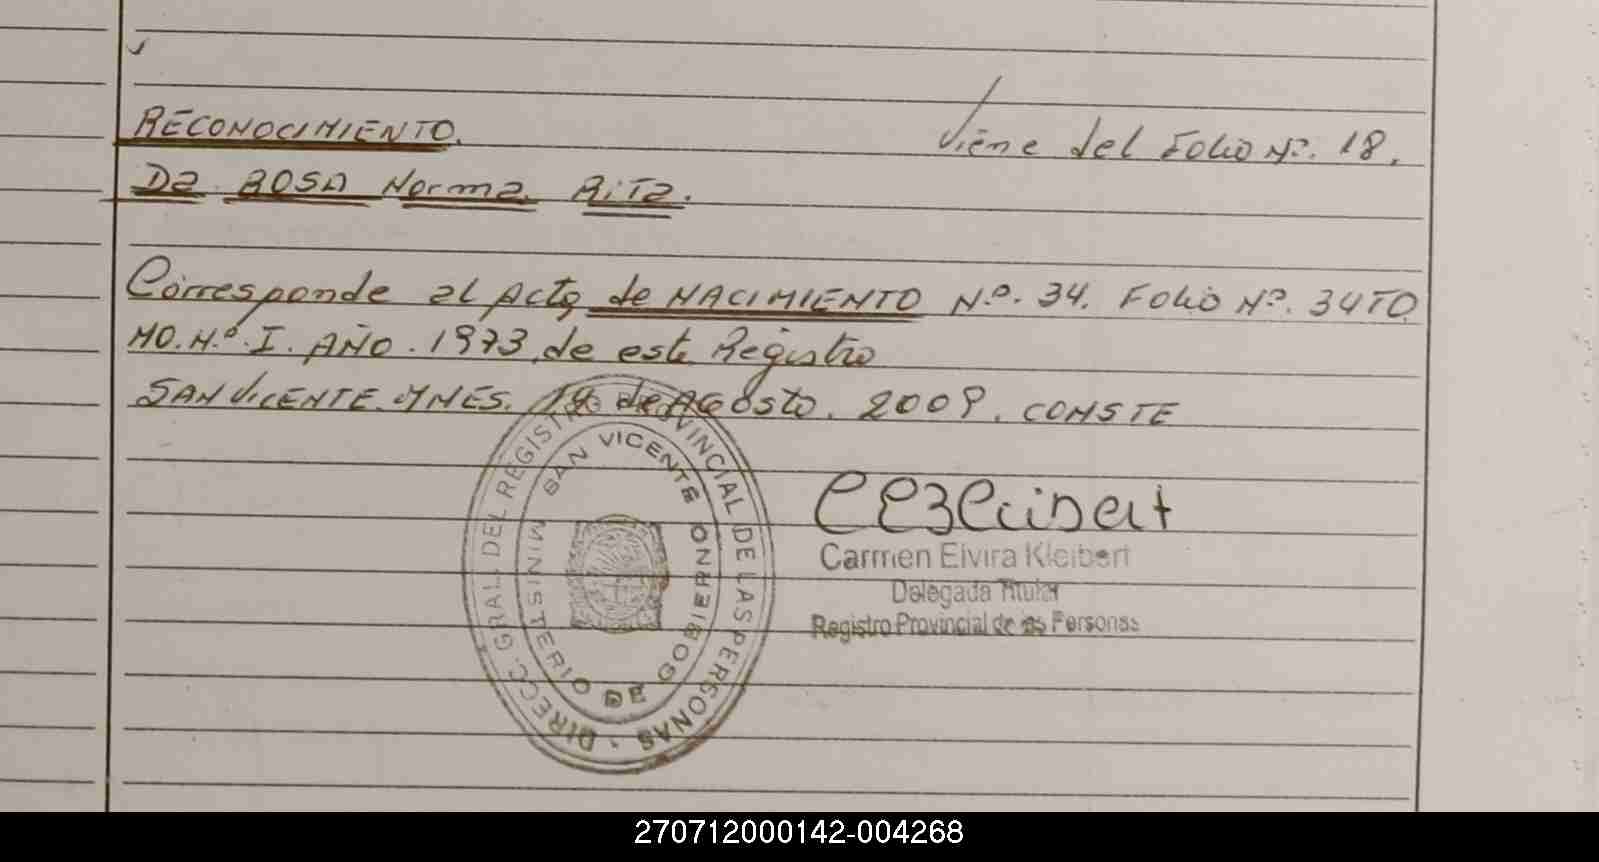 RECONOCIMIENTO.
Viene del Folio Nº. 18.
Da ROSA Norma. Rita.
Corresponde al Acta de NACIMIENTO Nº. 34. Folio Nº. 34 TO
MO. Nº. I. AÑO. 1973, de este Registro
SAN VICENTE. MNES. de Agosto. 2009. CONSTE
DIRECC. GRAL. DEL REGISTRO PROVINCIAL DE LAS PERSONAS
SAN VICENTE
MINISTERIO DE GOBIERNO
Carmen Elvira Kleibert
Delegada Titular
Registro Provincial de las Personas
270712000142-004268